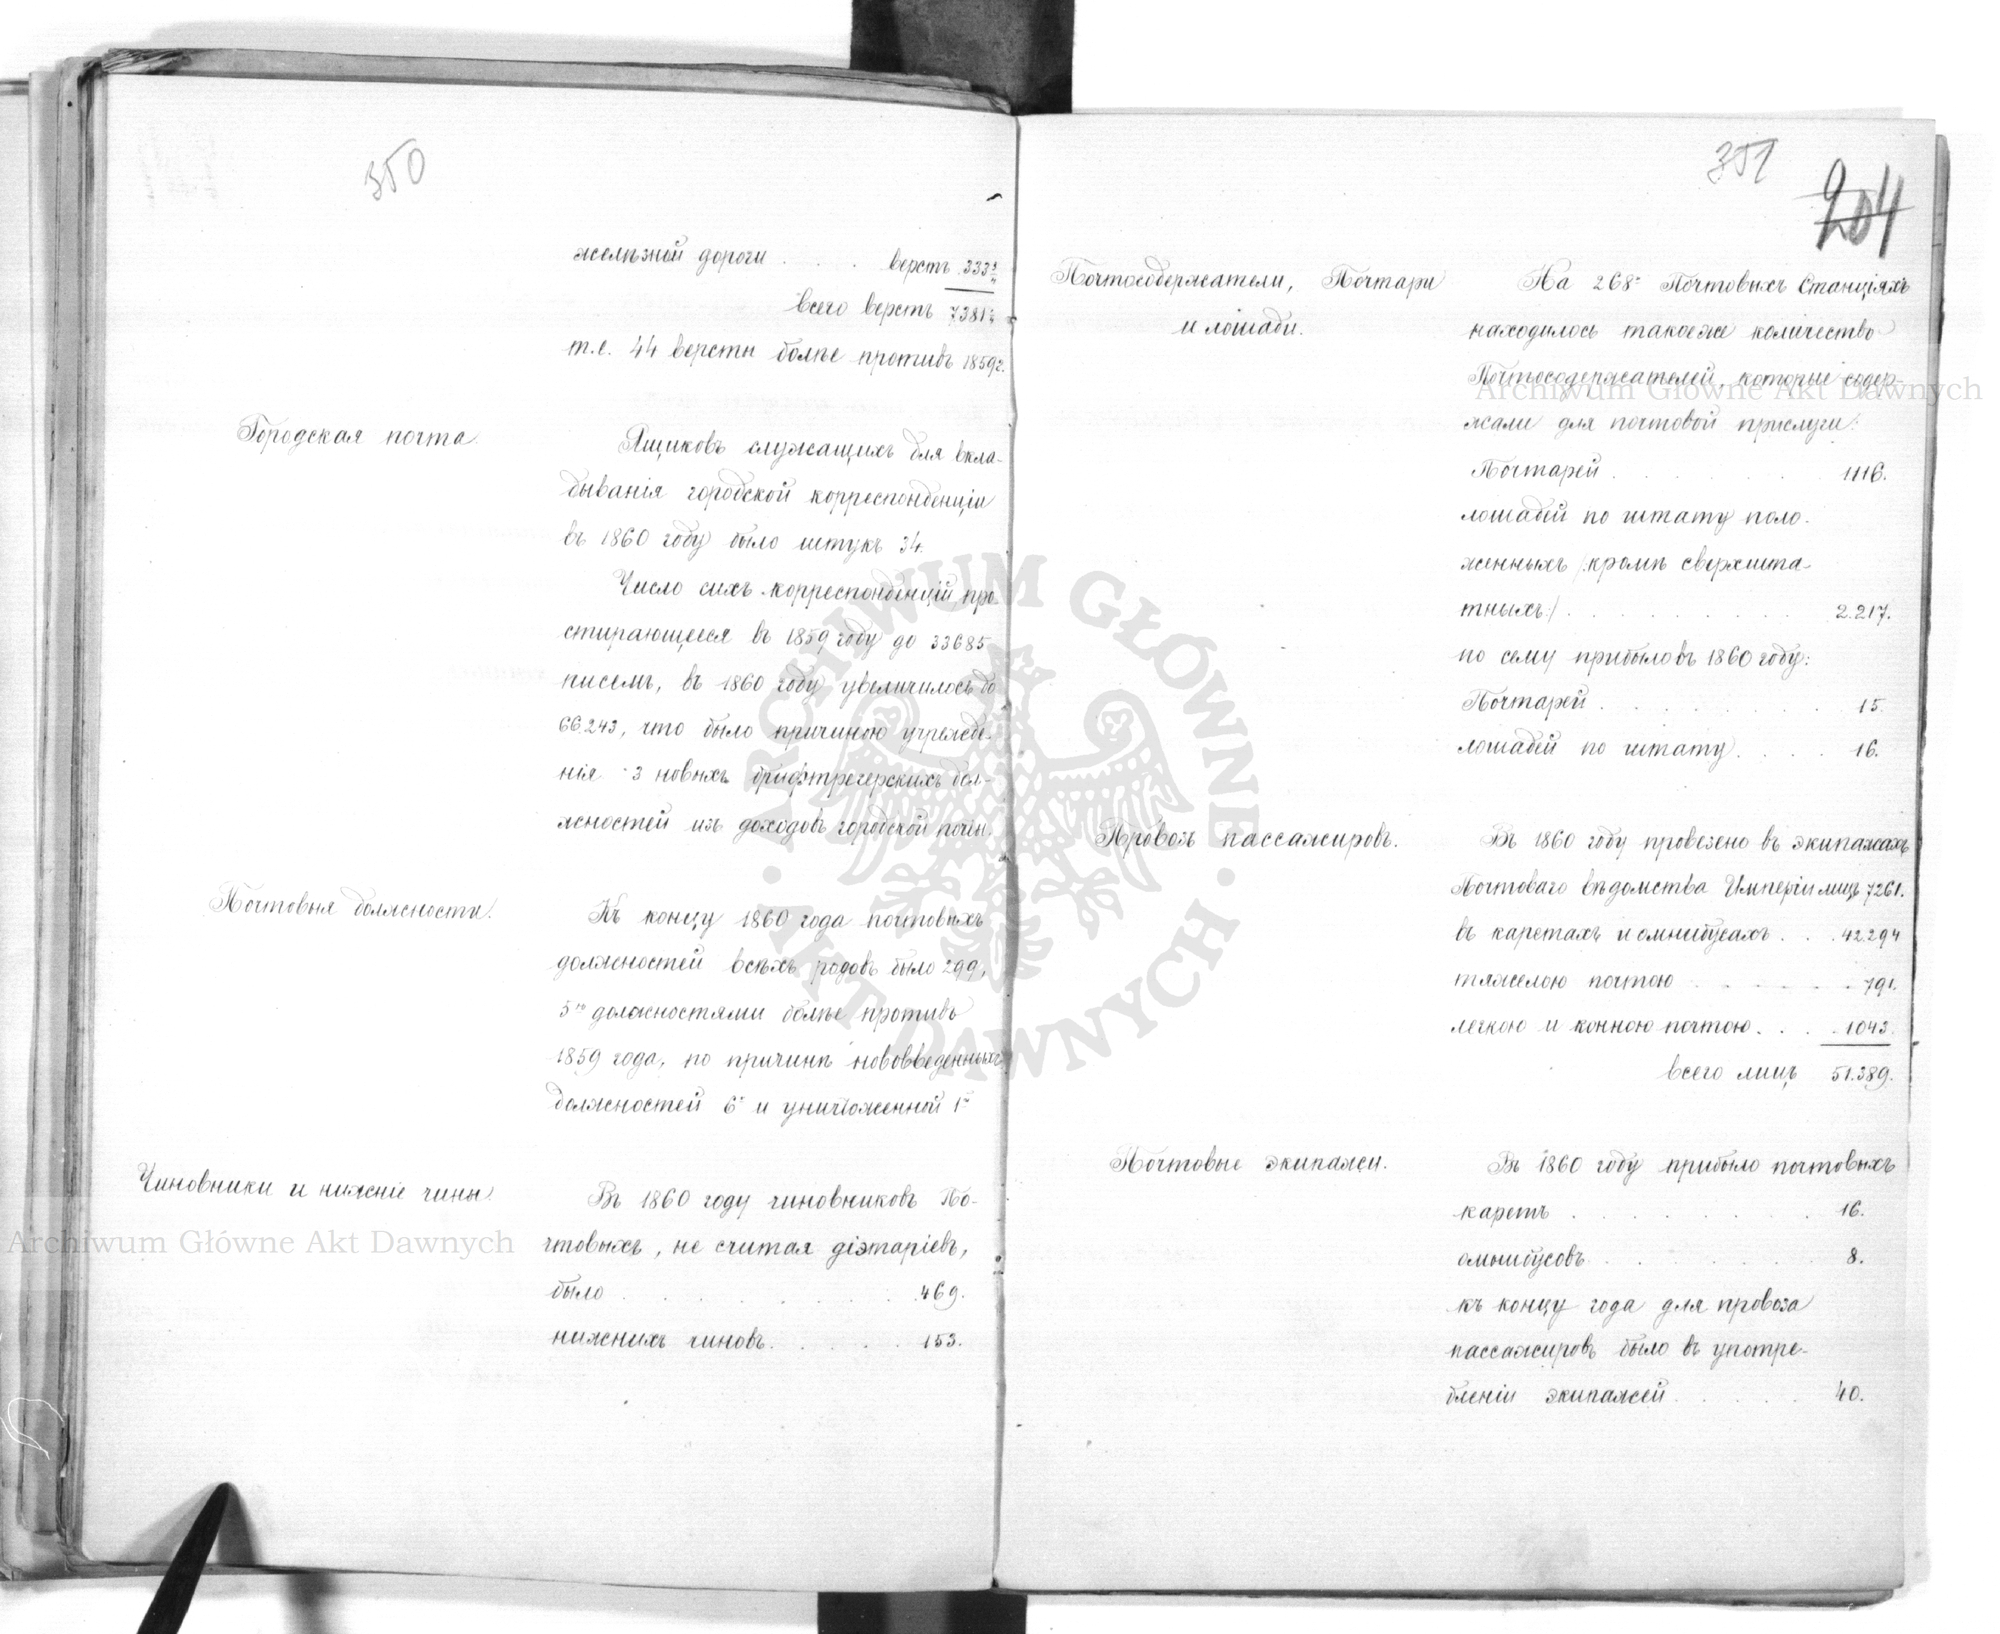 350
желѣзной дороги . . . . верстъ 333¾
всего верстъ 7381¼
т.е. 44 версты болѣе противъ 1859 г.
Городская почта.
Ящиковъ служащихъ для вкла-
дыванія городской корреспонденціи
въ 1860 году было штукъ 34.
Число сихъ корреспонденцій, про-
стирающееся въ 1859 году до 33685
писемъ, въ 1860 году увеличилось до
66.243, что было причиною учрежде-
нія 3 новыхъ брифтрегерскихъ дол-
жностей изъ доходовъ городской почты.
Почтовыя должности.
Къ концу 1860 года почтовыхъ
должностей всѣхъ родовъ было 299,
5ю должностями болѣе противъ
1859 года, по причинѣ нововведенныхъ
должностей 6и и уничтоженной 1й
Чиновники и нижніе чины.
Въ 1860 году чиновниковъ По-
чтовыхъ, не считая діэтаріевъ,
было . . . . . . . 469.
нижнихъ чиновъ . . . . . 153.
351
204
Почтосодержатели, Почтари
и лошади.
На 268и Почтовыхъ Станціяхъ
находилось такоеже количество
Почтосодержателей, которые содер-
жали для почтовой прислуги:
Почтарей . . . . . . 1116.
лошадей по штату поло-
женныхъ /:кромѣ сверхшта-
тныхъ:/ . . . . . . . 2.217.
по сему прибыло въ 1860 году:
Почтарей . . . . . . . 15.
лошадей по штату . . . . 16.
Провозъ пассажировъ.
Въ 1860 году провезено въ экипажахъ
Почтоваго вѣдомства Имперіи лицъ 7261.
въ каретахъ и омнибусахъ . . . 42.294
тяжелою почтою . . . . . . 791.
легкою и конною почтою . . . . 1043.
всего лицъ 51.389.
Почтовые экипажи.
Въ 1860 году прибыло почтовыхъ
каретъ . . . . . . . 16.
омнибусовъ . . . . . . 8.
къ концу года для провоза
пассажировъ было въ употре-
бленіи экипажей . . . . . 40.
Archiwum Główne Akt Dawnych
Archiwum Główne Akt Dawnych
ARCHIWUM GŁÓWNE AKT DAWNYCH